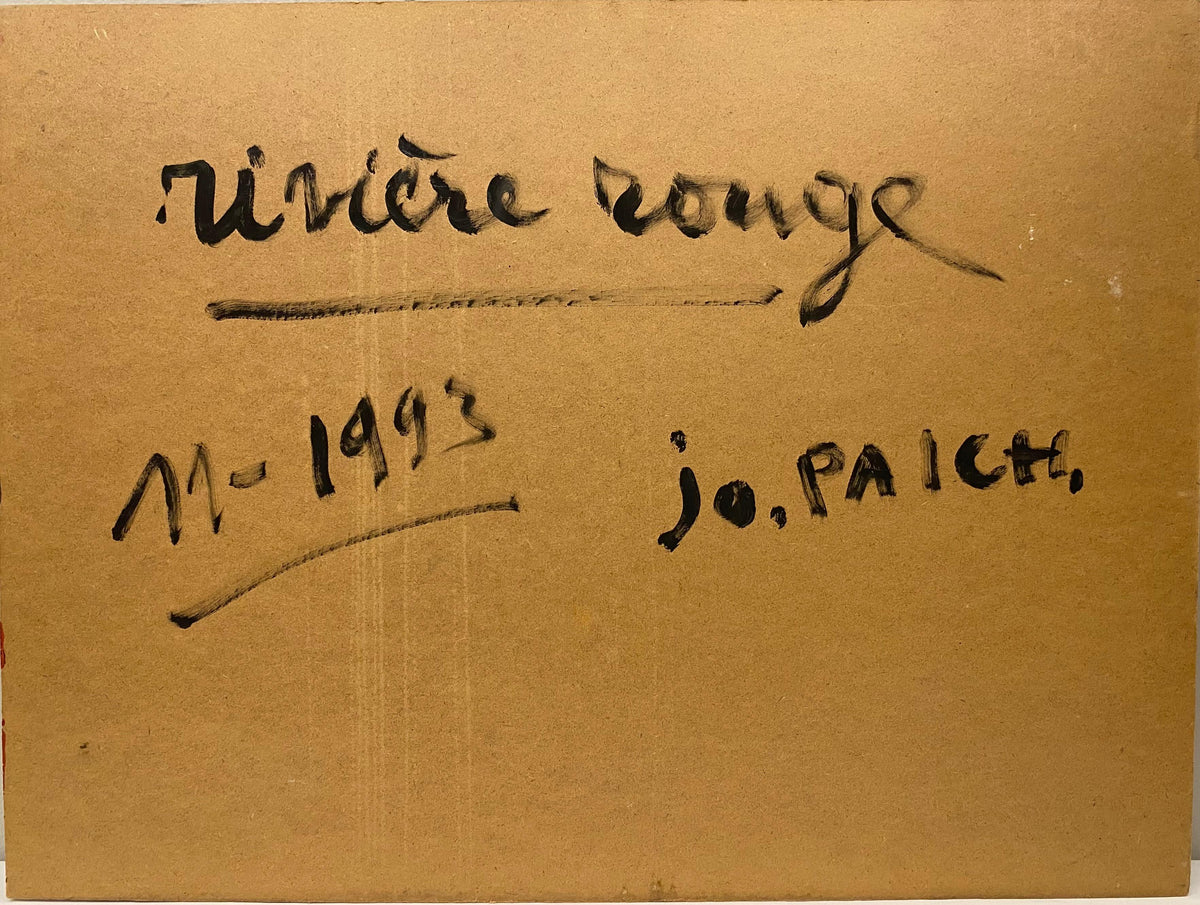 rivière rouge
11-1993
jo. PAICH.